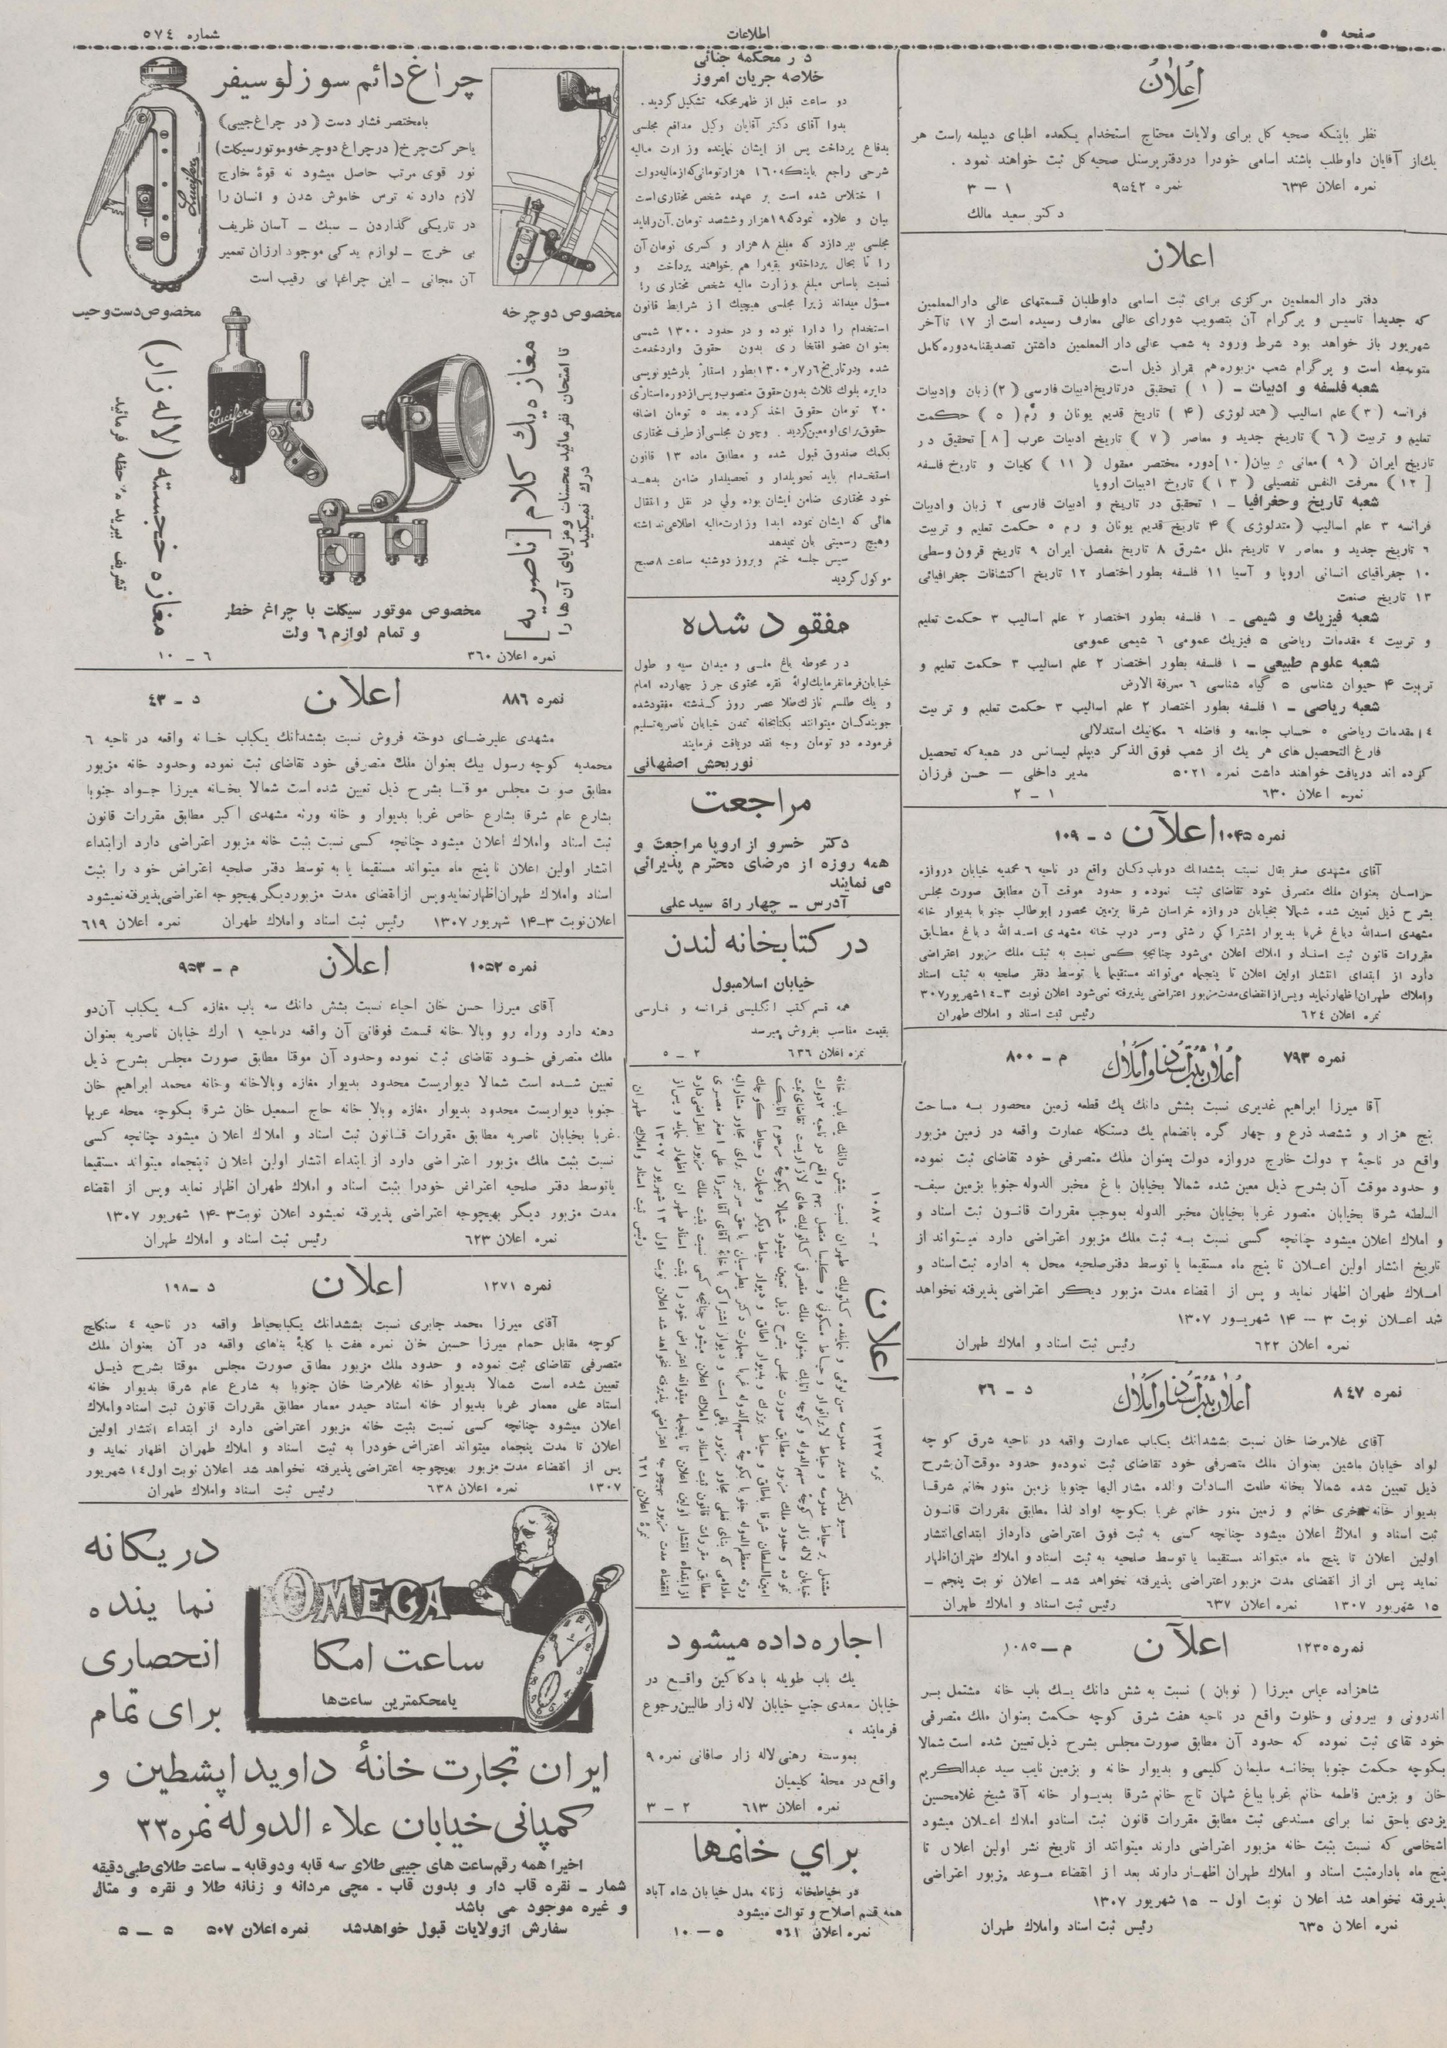 صفحه ۵
اطلاعات
شماره ۵۷۴
اعلان
نظر باینکه صحیه کل برای ولایات محتاج استخدام یکعده اطبای دیپلمه است هر
یك از آقایان داوطلب باشند اسامی خودرا دردفتر پرسنل صحیه کل ثبت خواهند نمود .
نمره اعلان ۶۳۴ نمره ۹۵۴۲ ۱ – ۳
دکتر سعید مالك
اعلان
دفتر دار المعلمین مرکزی برای ثبت اسامی داوطلبان قسمتهای عالی دارالمعلمین
که جدیدا تاسیس و پرگرام آن بتصویب شورای عالی معارف رسیده است از ۱۷ تا آخر
شهریور باز خواهد بود شرط ورود به شعب عالی دار المعلمین داشتن تصدیقنامه دوره کامل
متوسطه است و پرگرام شعب مزبوره هم بقرار ذیل است
شعبه فلسفه و ادبیات – ( ۱ ) تحقیق در تاریخ ادبیات فارسی ( ۲ ) زبان وادبیات
فرانسه ( ۳ ) علم اسالیب ( متدلوژی ) ( ۴ ) تاریخ قدیم یونان و رم ( ۵ ) حکمت
تعلیم و تربیت ( ۶ ) تاریخ جدید و معاصر ( ۷ ) تاریخ ادبیات عرب [ ۸ ] تحقیق در
تاریخ ایران ( ۹ ) معانی و بیان [ ۱۰ ] دوره مختصر معقول ( ۱۱ ) کلیات و تاریخ فلسفه
[ ۱۲ ] معرفت النفس تفصیلی ( ۱۳ ) تاریخ ادبیات اروپا
شعبه تاریخ وجغرافیا – ۱ تحقیق در تاریخ و ادبیات فارسی ۲ زبان و ادبیات
فرانسه ۳ علم اسالیب ( متدلوژی ) ۴ تاریخ قدیم یونان و رم ۵ حکمت تعلیم و تربیت
۶ تاریخ جدید و معاصر ۷ تاریخ ملل مشرق ۸ تاریخ مفصل ایران ۹ تاریخ قرون وسطی
۱۰ جغرافیای انسانی اروپا و آسیا ۱۱ فلسفه بطور اختصار ۱۲ تاریخ اکتشافات جغرافیائی
۱۳ تاریخ صنعت
شعبه فیزیك و شیمی – ۱ فلسفه بطور اختصار ۲ علم اسالیب ۳ حکمت تعلیم
و تربیت ۴ مقدمات ریاضی ۵ فیزیك عمومی ۶ شیمی عمومی
شعبه علوم طبیعی – ۱ فلسفه بطور اختصار ۲ علم اسالیب ۳ حکمت تعلیم و
تربیت ۴ حیوان شناسی ۵ گیاه شناسی ۶ معرفة الارض
شعبه ریاضی – ۱ فلسفه بطور اختصار ۲ علم اسالیب ۳ حکمت تعلیم و تربیت
۴ مقدمات ریاضی ۵ حساب جامعه و فاضله ۶ مکانیك استدلالی
فارغ التحصیل های هر یك از شعب فوق الذکر دیپلم لیسانس در شعبه که تحصیل
کرده اند دریافت خواهند داشت نمره ۵۰۲۱ مدیر داخلی – حسن فرزان
نمره اعلان ۶۳۰ ۱ – ۲
نمره ۱۰۴۵ اعلان د – ۱۰۹
آقای مشهدی صفر بقال نسبت بششدانك دوباب دکان واقع در ناحیه ۶ محمدیه خیابان دروازه
خراسان بعنوان ملك متصرفی خود تقاضای ثبت نموده و حدود موقت آن مطابق صورت مجلس
بشرح ذیل تعیین شده شمالا بخیابان دروازه خراسان شرقا بزمین محصور ابوطالب جنوبا بدیوار خانه
مشهدی اسدالله دباغ غربا بدیوار اشتراکی رشقی وسر درب خانه مشهدی اسدالله دباغ مطابق
مقررات قانون ثبت اسناد و املاك اعلان می‌شود چنانچه کسی نسبت به ثبت ملك مزبور اعتراضی
دارد از ابتدای انتشار اولین اعلان تا پنجماه می‌تواند مستقیما یا توسط دفتر صلحیه به ثبت اسناد
واملاك طهران اظهار نماید وپس از انقضای مدت مزبور اعتراضی پذیرفته نمی‌شود اعلان نوبت ۳–۱۴ شهریور ۳۰۷
نمره اعلان ۶۲۴ رئیس ثبت اسناد و املاك طهران
نمره ۷۹۳ اعلان ثبت اسناد و املاك م – ۸۰۰
آقا میرزا ابراهیم غدیری نسبت بشش دانك یك قطعه زمین محصور به مساحت
پنج هزار و ششصد ذرع و چهار گره بانضمام یك دستگاه عمارت واقعه در زمین مزبور
واقع در ناحیهٔ ۲ دولت خارج دروازه دولت بعنوان ملك متصرفی خود تقاضای ثبت نموده
و حدود موقت آن بشرح ذیل معین شده شمالا بخیابان باغ مخبر الدوله جنوبا بزمین سیف–
السلطنه شرقا بخیابان منصور غربا بخیابان مخبر الدوله بموجب مقررات قانون ثبت اسناد و
و املاك اعلان میشود چنانچه کسی نسبت به ثبت ملك مزبور اعتراضی دارد میتواند از
تاریخ انتشار اولین اعلان تا پنج ماه مستقیما یا توسط دفترصلحیه محل به اداره ثبت اسناد و
املاك طهران اظهار نماید و پس از انقضاء مدت مزبور دیگر اعتراضی پذیرفته نخواهد
شد اعلان نوبت ۳ – ۱۴ شهریور ۱۳۰۷
نمره اعلان ۶۲۲ رئیس ثبت اسناد و املاك طهران
نمره ۸۴۷ اعلان ثبت اسناد و املاك د – ۲۶
آقای غلامرضا خان نسبت بششدانك یکباب عمارت واقعه در ناحیه شرق کوچه
لواد خیابان ماشین بعنوان ملك متصرفی خود تقاضای ثبت نموده و حدود موقت آن بشرح
ذیل تعیین شده شمالا بخانه طلعت السادات والده مشار الیها جنوبا زمین منور خانم شرقا
بدیوار خانه فخری خانم و زمین منور خانم غربا بکوچه اواد لذا مطابق مقررات قانون
ثبت اسناد و املاك اعلان میشود چنانچه کسی به ثبت فوق اعتراضی دارداز ابتدای انتشار
اولین اعلان تا پنج ماه میتواند مستقیما یا توسط صلحیه به ثبت اسناد و املاك طهران اظهار
نماید پس از از انقضای مدت مزبور اعتراضی پذیرفته نخواهد شد – اعلان نوبت پنجم –
۱۵ شهریور ۱۳۰۷ نمره اعلان ۶۳۷ رئیس ثبت اسناد و املاك طهران
نمره ۱۲۳۵ اعلان م – ۱۰۸۵
شاهزاده عباس میرزا ( نوبان ) نسبت به شش دانك یك باب خانه مشتمل بر
اندرونی و بیرونی و خلوت واقع در ناحیه هفت شرق کوچه حکمت بعنوان ملك متصرفی
خود تقای ثبت نموده که حدود آن مطابق صورت مجلس بشرح ذیل تعیین شده است شمالا
بکوچه حکمت جنوبا بخانه سلیمان کلیمی و بدیوار خانه و بزمین نایب سید عبدالکریم
خان و بزمین فاطمه خانم غربا بباغ شهان تاج خانم شرقا بدیوار خانه آقا شیخ غلامحسین
یزدی باحق نما برای مستدعی ثبت مطابق مقررات قانون ثبت اسنادو املاك اعلان میشود
اشخاصی که نسبت بثبت خانه مزبور اعتراضی دارند میتوانند از تاریخ نشر اولین اعلان تا
پنج ماه بادارهٔ ثبت اسناد و املاك طهران اظهار دارند بعد از انقضاء موعد مزبور اعتراضی
پذیرفته نخواهد شد اعلان نوبت اول – ۱۵ شهریور ۱۳۰۷
نمره اعلان ۶۳۵ رئیس ثبت اسناد واملاك طهران
در محکمه جنائی
خلاصه جریان امروز
دو ساعت قبل از ظهر محکمه تشکیل گردید .
بدوا آقای دکتر آقایان وکیل مدافع مجلسی
بدفاع پرداخت پس از ایشان نماینده وزارت مالیه
شرحی راجع باینکه ۱۶۰ هزار تومانی که از مالیه دولت
اختلاس شده است بر عهده شخص مختاری است
بیان و علاوه نمود که ۱۹ هزار و ششصد تومان آن را باید
مجلسی بپردازد که مبلغ ۸ هزار و کسری تومان آن
را تا بحال پرداخته و بقیه را هم خواهند پرداخت و
نسبت باساس مبلغ وزارت مالیه شخص مختاری را
مسؤل میداند زیرا مجلسی هیچیك از شرایط قانون
استخدام را دارا نبوده و در حدود ۱۳۰۰ شمسی
بعنوان عضو افتخاری بدون حقوق وارد خدمت
شده ودر تاریخ ۶ ر ۷ ر ۱۳۰۰ بطور استاژ بارشیو نویسی
دایره بلوك ثلاث بدون حقوق منصوب وپس از دوره استاژی
۲۰ تومان حقوق اخذ کرده بعد ۵ تومان اضافه
حقوق برای او معین گردید . وچون مجلسی از طرف مختاری
بکمك صندوق قبول شده و مطابق ماده ۱۳ قانون
استخدام باید تحویلدار و تحصیلدار ضامن بدهد
خود مختاری ضامن ایشان بوده ولی در نقل و انتقال
هائی که ایشان نموده ابدا وزارت مالیه اطلاعی نداشته
وهیچ رسمیتی بآن نمیدهد
سپس جلسه ختم و بروز دوشنبه ساعت ۸ صبح
موکول گردید
مفقود شده
در محوطه باغ ملی و میدان سپه و طول
خیابان فرمانفرما یك لوله نقره محتوی جرز چهارده امام
و یك طلسم نازك طلا عصر روز گذشته مفقود شده
جویندگان میتوانند بکتابخانه تمدن خیابان ناصریه تسلیم
فرموده دو تومان وجه نقد دریافت فرمایند
نوربخش اصفهانی
مراجعت
دکتر خسرو از اروپا مراجعت و
همه روزه از مرضای محترم پذیرائی
می نمایند
آدرس – چهار راه سید علی
در کتابخانه لندن
خیابان اسلامبول
همه قسم کتب انگلیسی فرانسه و فارسی
بقیمت مناسب بفروش میرسد
نمره اعلان ۶۳۶ ۲ – ۵
نمره ۱۲۳۷ اعلان م – ۱۰۸۷
نمرهٔ اعلان ۶۲۱ رئیس ثبت اسناد واملاك طهران
اجاره داده میشود
یك باب طویله با دکاکین واقع در
خیابان سعدی جنب خیابان لاله زار طالبین رجوع
فرمایند ،
بموسسهٔ رهنی لاله زار صاقانی نمره ۹
واقع در محلهٔ کلیمیان
نمره اعلان ۶۱۳ ۲ – ۳
برای خانمها
در خیاطخانه زنانه مدل خیابان شاه آباد
همه قسم اصلاح و توالت میشود
نمره اعلان ۵۶۱ ۵ – ۱۰
چراغ دائم سوز لوسیفر
بامختصر فشار دست ( در چراغ جیبی )
یا حرکت چرخ ( در چراغ دوچرخه و موتور سیکلت )
نور قوی مرتب حاصل میشود نه قوهٔ خارج
لازم دارد نه ترس خاموش شدن و انسان را
در تاریکی گذاردن – سبك – آسان ظریف
بی خرج – لوازم یدکی موجود ارزان تعمیر
آن مجانی – این چراغها بی رقیب است
Lucifer
مخصوص دست و جیب
مخصوص دوچرخه
Lucifer
مغازه خجسته ( لاله زار )
تشریف ببرید ملاحظه فرمائید
مغازه یك کلام [ ناصریه ]
تا امتحان نفرمائید محسنات و مزایای آن ها را
درك نمیکنید
مخصوص موتور سیکلت با چراغ خطر
و تمام لوازم ۶ ولت
نمره اعلان ۳۶۰ ۶ – ۱۰
نمره ۸۸۶ اعلان د – ۴۳
مشهدی علیرضای دوخته فروش نسبت بششدانك یکباب خانه واقعه در ناحیه ۶
محمدیه کوچه رسول بیك بعنوان ملك متصرفی خود تقاضای ثبت نموده وحدود خانه مزبور
مطابق صورت مجلس موقتا بشرح ذیل تعیین شده است شمالا بخانه میرزا جواد جنوبا
بشارع عام شرقا بشارع خاص غربا بدیوار و خانه ورثه مشهدی اکبر مطابق مقررات قانون
ثبت اسناد واملاك اعلان میشود چنانچه کسی نسبت بثبت خانه مزبور اعتراضی دارد ازابتداء
انتشار اولین اعلان تا پنج ماه میتواند مستقیما یا به توسط دفتر صلحیه اعتراض خود را بثبت
اسناد واملاك طهران اظهار نماید وپس از انقضای مدت مزبور دیگر بهیچوجه اعتراضی پذیرفته نمیشود
اعلان نوبت ۳–۱۴ شهریور ۱۳۰۷ رئیس ثبت اسناد و املاك طهران نمره اعلان ۶۱۹
نمره ۱۰۵۲ اعلان م – ۹۵۳
آقای میرزا حسن خان احیاء نسبت بشش دانك سه باب مغازه که یکباب آن دو
دهنه دارد وراه رو وبالا خانه قسمت فوقانی آن واقعه درناحیه ۱ ارك خیابان ناصریه بعنوان
ملك متصرفی خود تقاضای ثبت نموده وحدود آن موقتا مطابق صورت مجلس بشرح ذیل
تعیین شده است شمالا دیواریست محدود بدیوار مغازه وبالاخانه وخانه محمد ابراهیم خان
جنوبا دیواریست محدود بدیوار مغازه وبالا خانه حاج اسمعیل خان شرقا بکوچه محله عربها
غربا بخیابان ناصریه مطابق مقررات قانون ثبت اسناد و املاك اعلان میشود چنانچه کسی
نسبت بثبت ملك مزبور اعتراضی دارد از ابتداء انتشار اولین اعلان تاپنجماه میتواند مستقیما
یاتوسط دفتر صلحیه اعتراض خودرا بثبت اسناد و املاك طهران اظهار نماید وپس از انقضاء
مدت مزبور دیگر بهیچوجه اعتراضی پذیرفته نمیشود اعلان نوبت ۳–۱۴ شهریور ۱۳۰۷
نمره اعلان ۶۲۳ رئیس ثبت اسناد و املاك طهران
نمره ۱۲۷۱ اعلان د –۱۹۸
آقای میرزا محمد جابری نسبت بششدانك یکبابحیاط واقعه در ناحیه ۴ سنگلج
کوچه مقابل حمام میرزا حسین خان نمره هفت با کلیهٔ بناهای واقعه در آن بعنوان ملك
متصرفی تقاضای ثبت نموده و حدود ملك مزبور مطابق صورت مجلس موقتا بشرح ذیل
تعیین شده است شمالا بدیوار خانه غلامرضا خان جنوبا به شارع عام شرقا بدیوار خانه
استاد علی معمار غربا بدیوار خانه استاد حیدر معمار مطابق مقررات قانون ثبت اسناد واملاك
اعلان میشود چنانچه کسی نسبت بثبت خانه مزبور اعتراضی دارد از ابتداء انتشار اولین
اعلان تا مدت پنجماه میتواند اعتراض خودرا به ثبت اسناد و املاك طهران اظهار نماید و
پس از انقضاء مدت مزبور بهیچوجه اعتراضی پذیرفته نخواهد شد اعلان نوبت اول ۱۴ شهریور
۱۳۰۷ نمره اعلان ۶۳۸ رئیس ثبت اسناد واملاك طهران
OMEGA
ساعت امکا
یامحکمترین ساعت‌ها
در یگانه
نماینده
انحصاری
برای تمام
ایران تجارت خانهٔ داوید اپشطین و
کمپانی خیابان علاء الدوله نمره ۳۳
اخیرا همه رقم ساعت های جیبی طلای سه قابه ودوقابه – ساعت طلای طبی دقیقه
شمار – نقره قاب دار و بدون قاب . مچی مردانه و زنانه طلا و نقره و متال
و غیره موجود می باشد
سفارش ازولایات قبول خواهدشد نمره اعلان ۵۰۷ ۵ – ۵